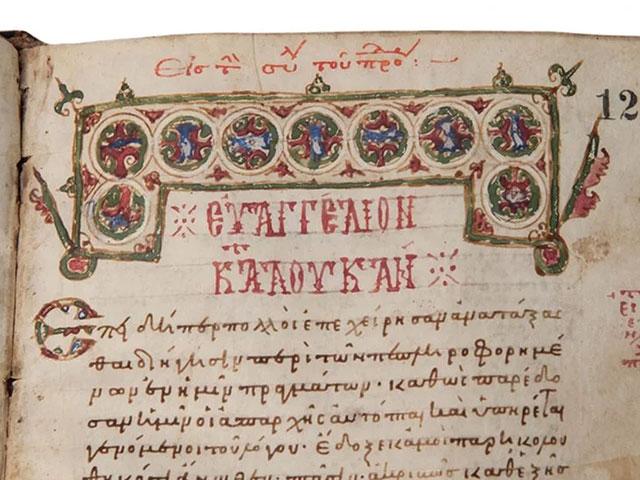 Εἰς τὴ συλ τοῦ προδ :
12
ΕΥΑΓΓΕΛΙΟΝ
ΚΑΤ ΛΟΥΚΑΝ
Ἐπειδήπερ πολλοὶ ἐπεχείρησαν ἀνατάξασ
θαι διήγησιν περὶ τῶν πεπληροφορημέ
νων ἐν ἡμῖν πραγμάτων· καθὼς παρέδο
σαν ἡμῖν οἱ ἀπαρχῆς αὐτόπται καὶ ὑπηρέται
γενόμενοι τοῦ λόγου· ἔδοξε κἀμοὶ παρηκολου
θηκότι ἄνωθεν πᾶσιν ἀκριβῶς καθεξῆς